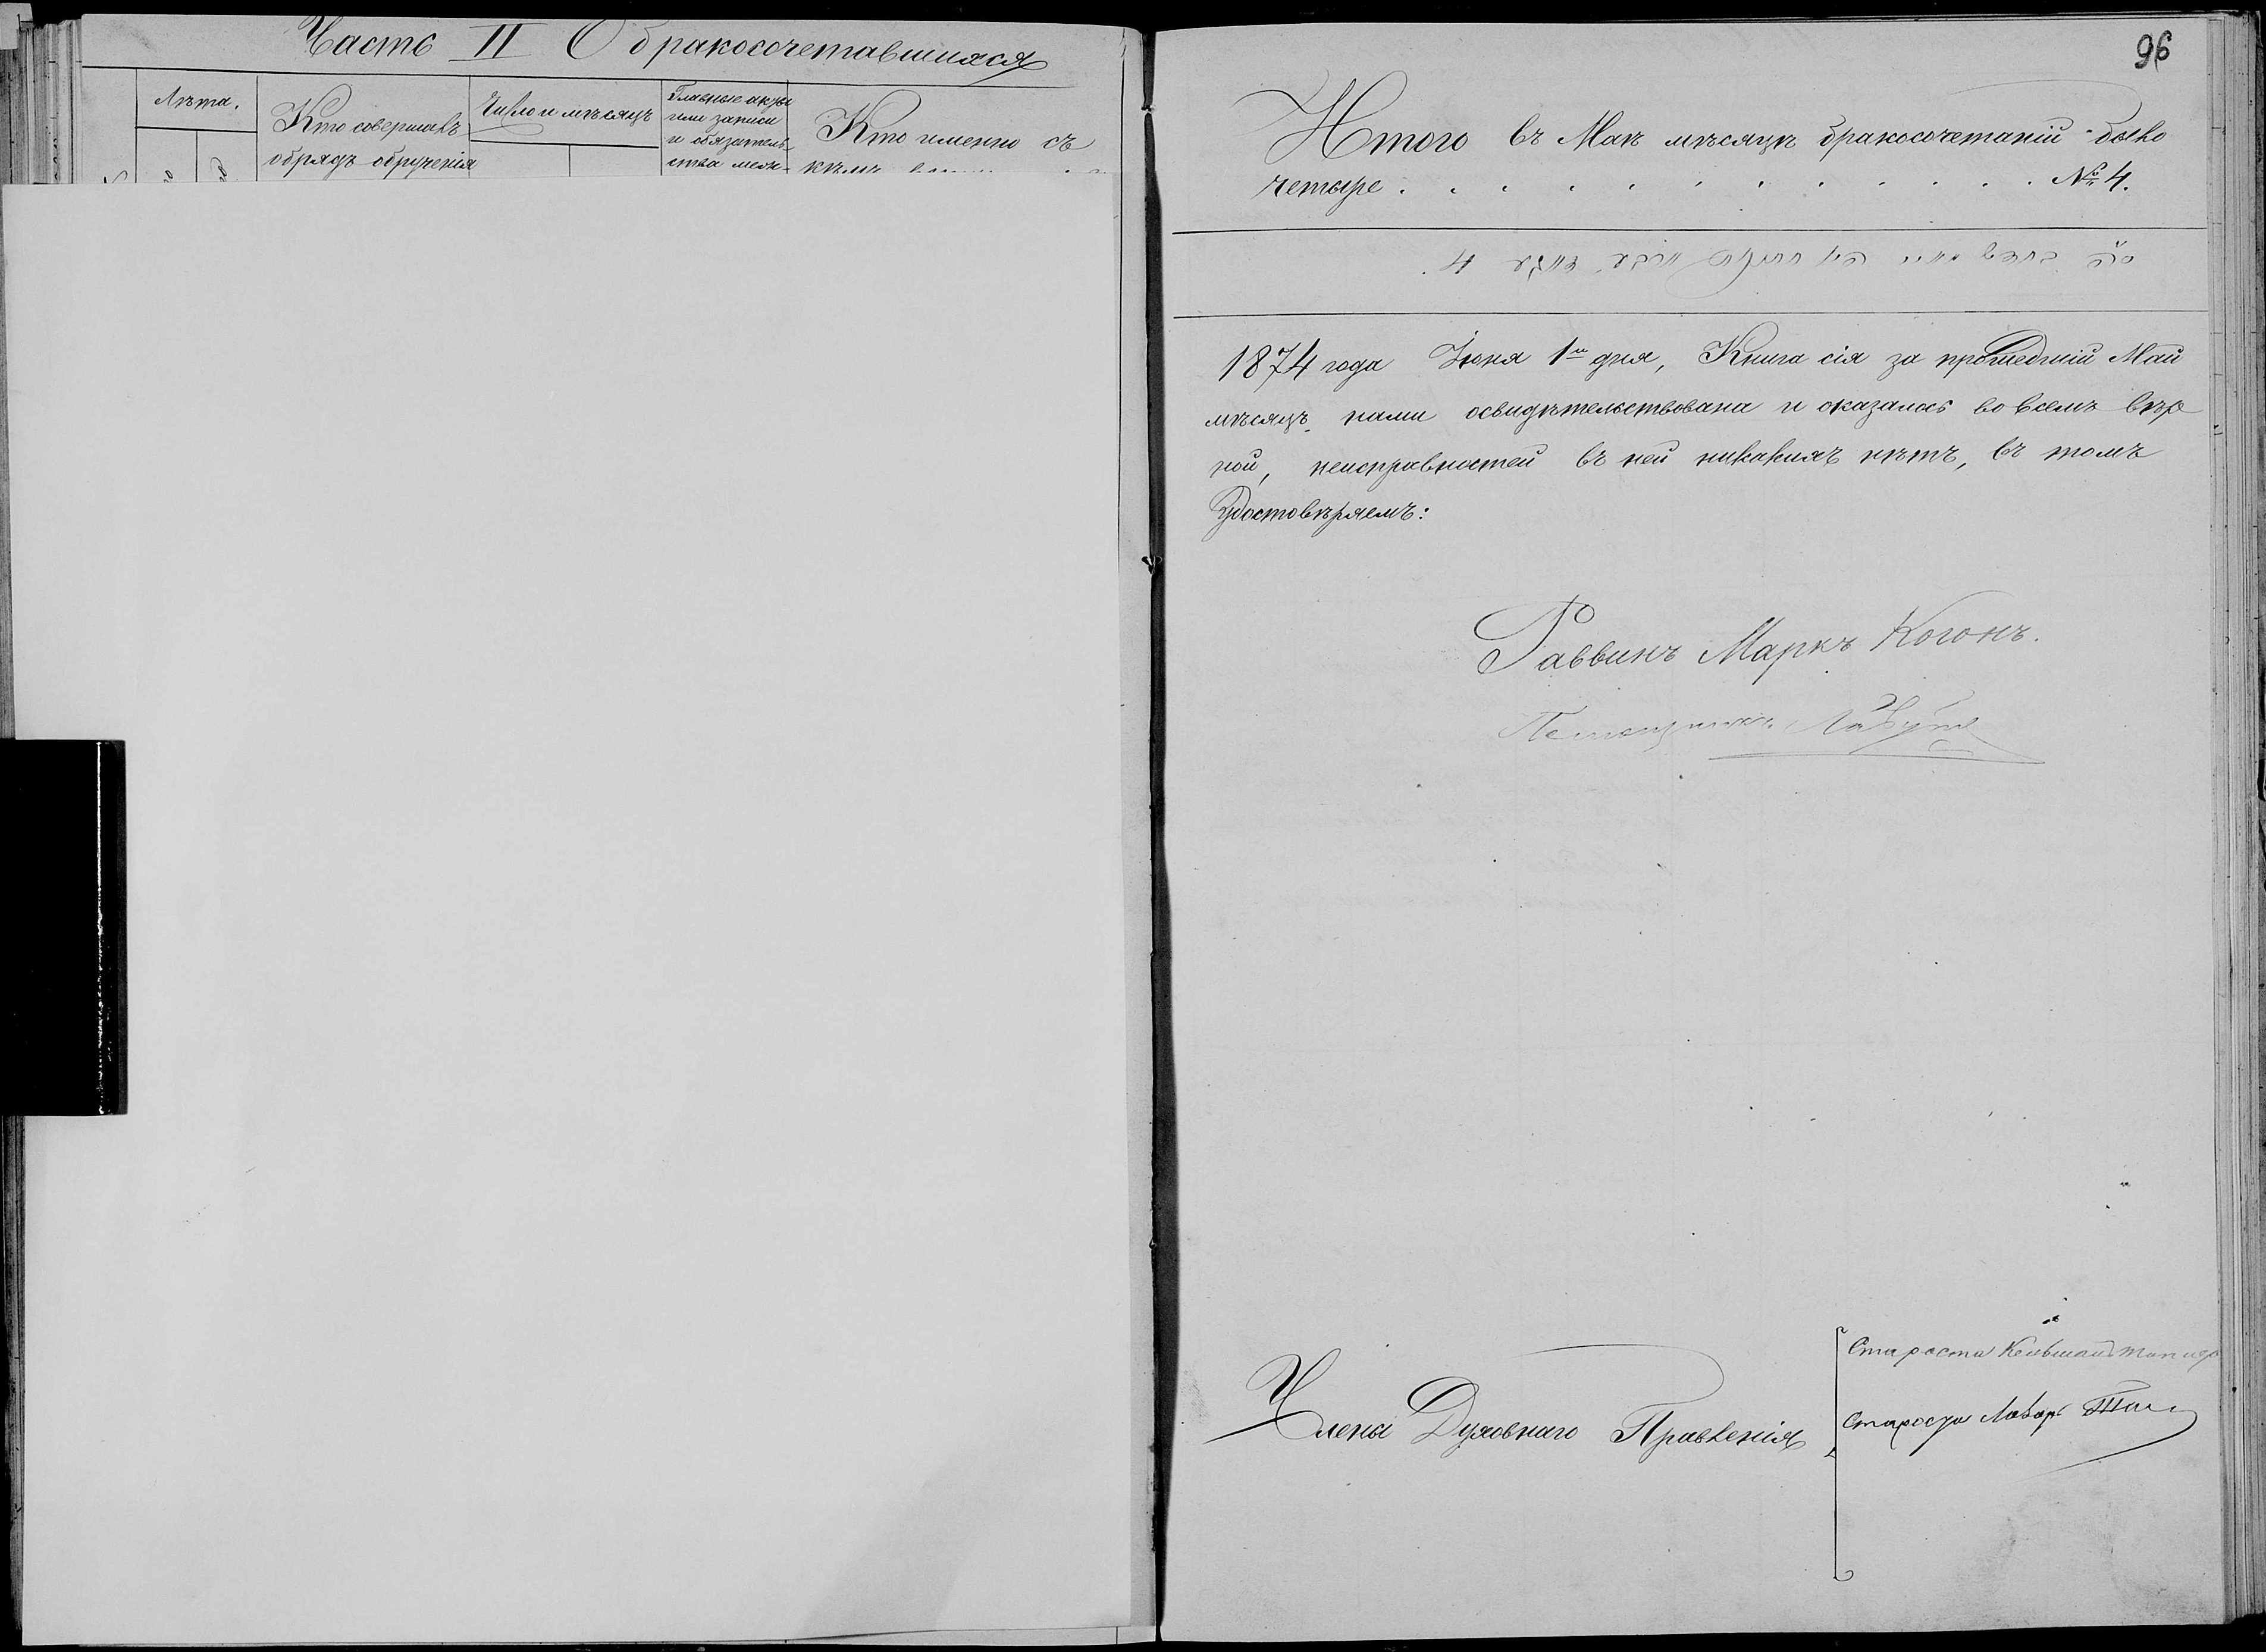 Часть II О бракосочетавшихся
Лѣта.
Кто совершалъ
обрядъ обрученія
Число и мѣсяцъ
Главные акты
или записи
и обязатель-
ства меж-
Кто именно съ
кѣмъ
96
Итого въ Маѣ мѣсяцѣ бракосочетаній было
четыре . . . . . . . . . . . . № 4.
4
1874 года Іюня 1го дня, Книга сія за прошедшій Май
мѣсяцъ нами освидѣтельствована и оказалась во всемъ вѣр
ной, неисправностей въ ней никакихъ нѣтъ, въ томъ
Удостовѣряемъ:
Раввинъ Маркъ Когонъ.
Помощникъ
Члены Духовнаго Правленія
Староста
Староста